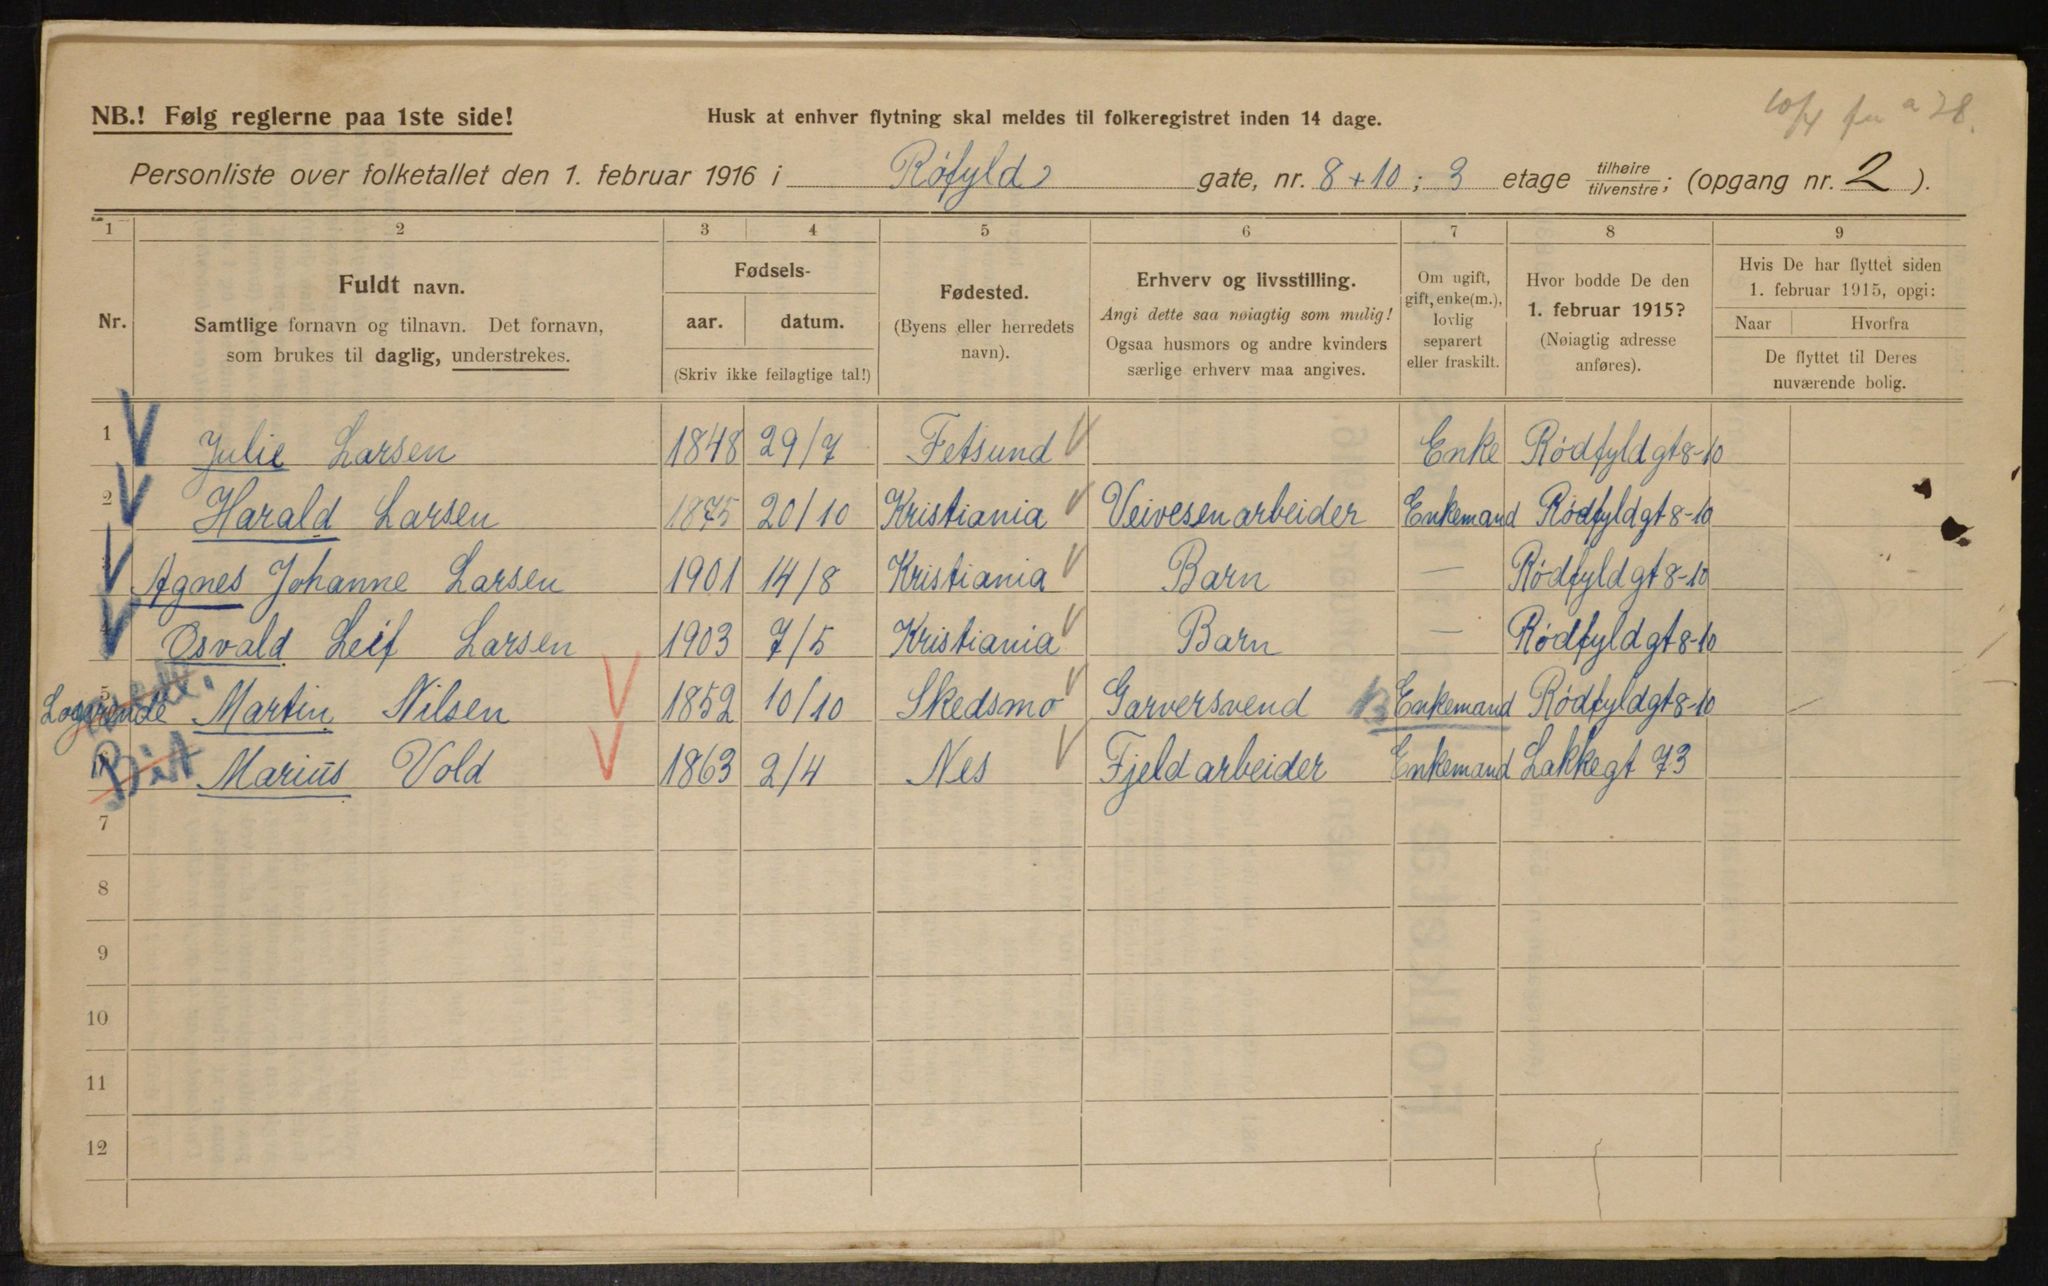 10/4 fu a 28.
NB.! Følg reglerne paa 1ste side!
Husk at enhver flytning skal meldes til folkeregistret inden 14 dage.
Personliste over folketallet den 1. februar 1916 i Røfyld gate, nr. 8+10; 3 etage tilhøire/tilvenstre; (opgang nr. 2 ).
1 2 3 4 5 6 7 8 9
Nr.
Fuldt navn.
Samtlige fornavn og tilnavn. Det fornavn,
som brukes til daglig, understrekes.
Fødsels-
aar. datum.
(Skriv ikke feilagtige tal!)
Fødested.
(Byens eller herredets
navn).
Erhverv og livsstilling.
Angi dette saa nøiagtig som mulig!
Ogsaa husmors og andre kvinders
særlige erhverv maa angives.
Om ugift,
gift, enke(m.),
lovlig
separert
eller fraskilt.
Hvor bodde De den
1. februar 1915?
(Nøiagtig adresse
anføres).
Hvis De har flyttet siden
1. februar 1915, opgi:
Naar Hvorfra
De flyttet til Deres
nuværende bolig.
1 Julie Larsen 1848 29/7 Fetsund Enke Rødfyldgt 8-10
2 Harald Larsen 1875 20/10 Kristiania Veivesenarbeider Enkemand Rødfyldgt 8-10
3 Agnes Johanne Larsen 1901 14/8 Kristiania Barn — Rødfyldgt 8-10
4 Osvald Leif Larsen 1903 7/5 Kristiania Barn — Rødfyldgt 8-10
5 Logerende Martin Nilsen 1852 10/10 Skedsmo Garversvend Enkemand Rødfyldgt 8-10
Marius Vold 1863 2/4 Nes Fjeldarbeider Enkemand Lakkegt 73
7
8
9
10
11
12